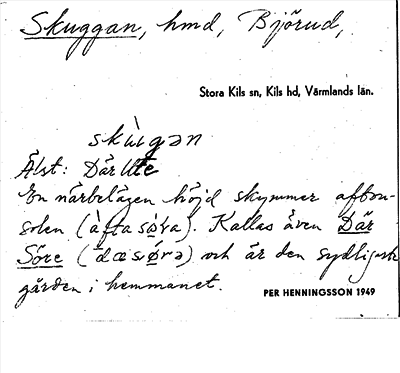 Skuggan, hmd, Björud,
Stora Kils sn, Kils hd, Värmlands län.
skùgən
Älst: Där Ute
En närbelägen höjd skymmer afton-
solen (àftasø̀ra). Kallas även Där
Söre (dæsǿrə) och är den sydligaste
gården i hemmanet.
PER HENNINGSSON 1949